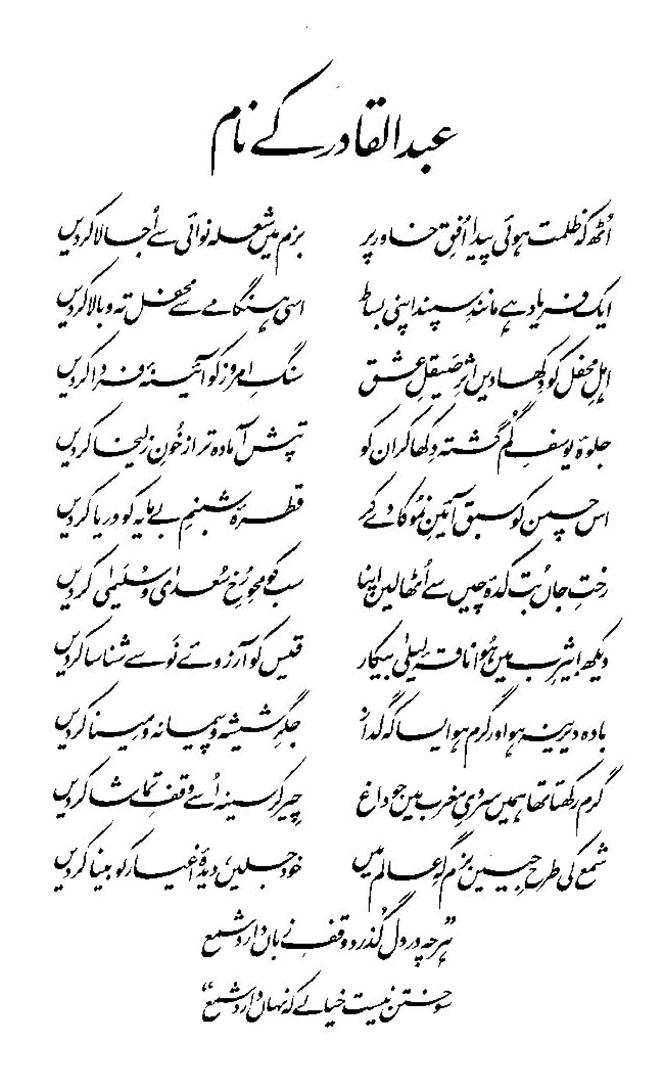 عبدالقادر کے نام
اُٹھ کہ ظلمت ہوئی پیدا اُفقِ خاور پر بزم میں شعلہ نوائی سے اُجالا کر دیں
ایک فریاد ہے مانندِ سپند اپنی بساط اسی ہنگامے سے محفل تہ و بالا کر دیں
اہلِ محفل کو دِکھا دیں اثرِ صَیقلِ عشق سنگِ امروز کو آئینۂ فردا کر دیں
جلوۂ یوسفِ گُم گشتہ دِکھا کر ان کو تپش آمادہ تر از خُونِ زلیخا کر دیں
اس چمن کو سبق آئینِ نمُو کا دے کر قطرۂ شبنمِ بے مایہ کو دریا کر دیں
رختِ جاں بُت کدۂ چیں سے اُٹھا لیں اپنا سب کو محوِ رُخِ سُعدیٰ و سُلیمیٰ کر دیں
دیکھ! یثرِب میں ہُوا ناقۂ لیلیٰ بیکار قیس کو آرزوئے نَو سے شناسا کر دیں
بادہ دیرینہ ہو اور گرم ہو ایسا کہ گداز جگرِ شیشہ و پیمانہ و مینا کر دیں
گرم رکھتا تھا ہمیں سردیِ مغرب میں جو داغ چِیر کر سینہ اُسے وقفِ تماشا کر دیں
شمع کی طرح جییں بزم گہِ عالم میں خود جلیں، دیدۂ اغیار کو بینا کر دیں
”ہرچہ در دل گُذرد وقفِ زباں دارد شمع
سوختن نیست خیالے کہ نہاں دارد شمع“